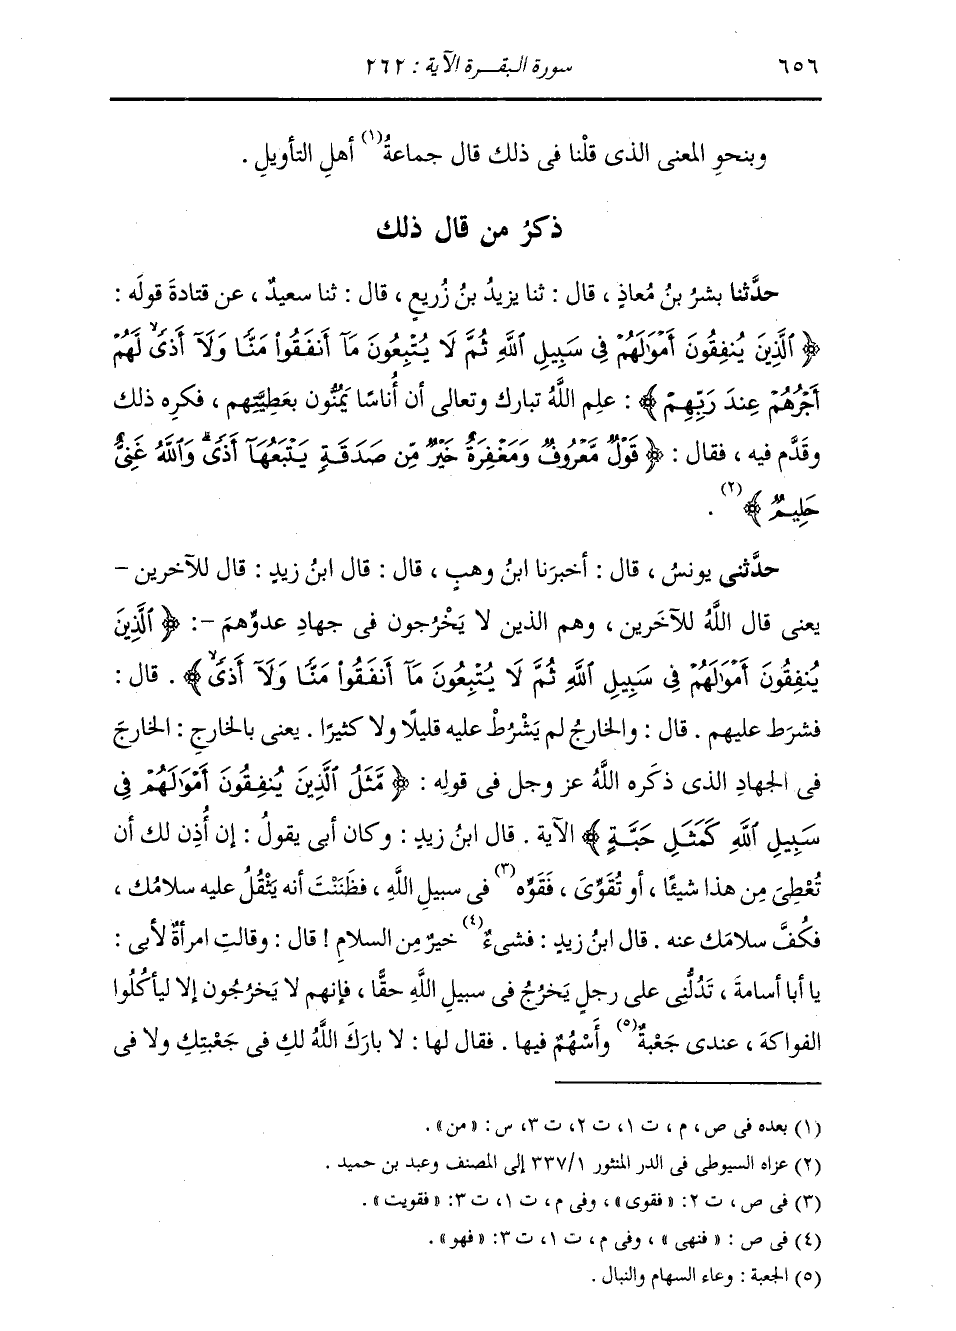 ٦٥٦ سورة البقـــرة الآية : ٢٦٢
وبنحوِ المعنى الذى قلْنا فى ذلك قال جماعةُ(١) أهلِ التأويلِ .
ذكرُ من قال ذلك
حدَّثنا بشرُ بنُ مُعاذٍ ، قال : ثنا يزيدُ بنُ زُريعٍ ، قال : ثنا سعيدٌ ، عن قتادةَ قولَه :
﴿ ٱلَّذِينَ يُنفِقُونَ أَمْوَٰلَهُمْ فِى سَبِيلِ ٱللَّهِ ثُمَّ لَا يُتْبِعُونَ مَآ أَنفَقُوا۟ مَنًّا وَلَآ أَذًىۙ لَّهُمْ
أَجْرُهُمْ عِندَ رَبِّهِمْ ﴾ : علِم اللَّهُ تبارك وتعالى أن أُناسًا يَمُنُّون بعَطِيَّتِهم ، فكرِه ذلك
وقَدَّم فيه ، فقال : ﴿ قَوْلٌ مَّعْرُوفٌ وَمَغْفِرَةٌ خَيْرٌ مِّن صَدَقَةٍ يَتْبَعُهَآ أَذًىۗ وَٱللَّهُ غَنِىٌّ
حَلِيمٌ ﴾(٢) .
حدَّثنى يونسُ ، قال : أخبرَنا ابنُ وهبٍ ، قال : قال ابنُ زيدٍ : قال للآخرين –
يعنى قال اللَّهُ للآخَرين ، وهم الذين لا يَخْرُجون فى جهادِ عدوِّهمَ –: ﴿ ٱلَّذِينَ
يُنفِقُونَ أَمْوَٰلَهُمْ فِى سَبِيلِ ٱللَّهِ ثُمَّ لَا يُتْبِعُونَ مَآ أَنفَقُوا۟ مَنًّا وَلَآ أَذًىۙ ﴾ . قال :
فشرَط عليهم . قال : والخارجُ لم يَشْرُطْ عليه قليلًا ولا كثيرًا . يعنى بالخارجِ : الخارجَ
فى الجهادِ الذى ذكَره اللَّهُ عز وجل فى قولِه : ﴿ مَّثَلُ ٱلَّذِينَ يُنفِقُونَ أَمْوَٰلَهُمْ فِى
سَبِيلِ ٱللَّهِ كَمَثَلِ حَبَّةٍ ﴾ الآية . قال ابنُ زيدٍ : وكان أبى يقولُ : إن أُذِن لك أن
تُعْطِىَ مِن هذا شيئًا ، أو تُقَوِّىَ ، فَقَوِّه(٣) فى سبيلِ اللَّهِ ، فظَنَنْتَ أنه يَثْقُلُ عليه سلامُك ،
فكُفَّ سلامَك عنه . قال ابنُ زيدٍ : فشىءٌ(٤) خيرٌ مِن السلامِ ! قال : وقالتِ امرأةٌ لأبى :
يا أبا أسامةَ ، تَدُلُّنِى على رجلٍ يَخرُجُ فى سبيلِ اللَّهِ حقًّا ، فإنهم لا يَخرُجون إلا ليأكُلُوا
الفواكهَ ، عندى جَعْبةٌ(٥) وأَسْهُمٌ فيها . فقال لها : لا بارَكَ اللَّهُ لكِ فى جَعْبتِكِ ولا فى
(١) بعده فى ص ، م ، ت ١، ت ٢، ت ٣، س : « من » .
(٢) عزاه السيوطى فى الدر المنثور ٣٣٧/١ إلى المصنف وعبد بن حميد .
(٣) فى ص ، ت ٢: « فقوى » ، وفى م ، ت ١، ت ٣: « فقويت » .
(٤) فى ص : « فنهى » ، وفى م ، ت ١، ت ٣: « فهو » .
(٥) الجعبة : وعاء السهام والنبال .